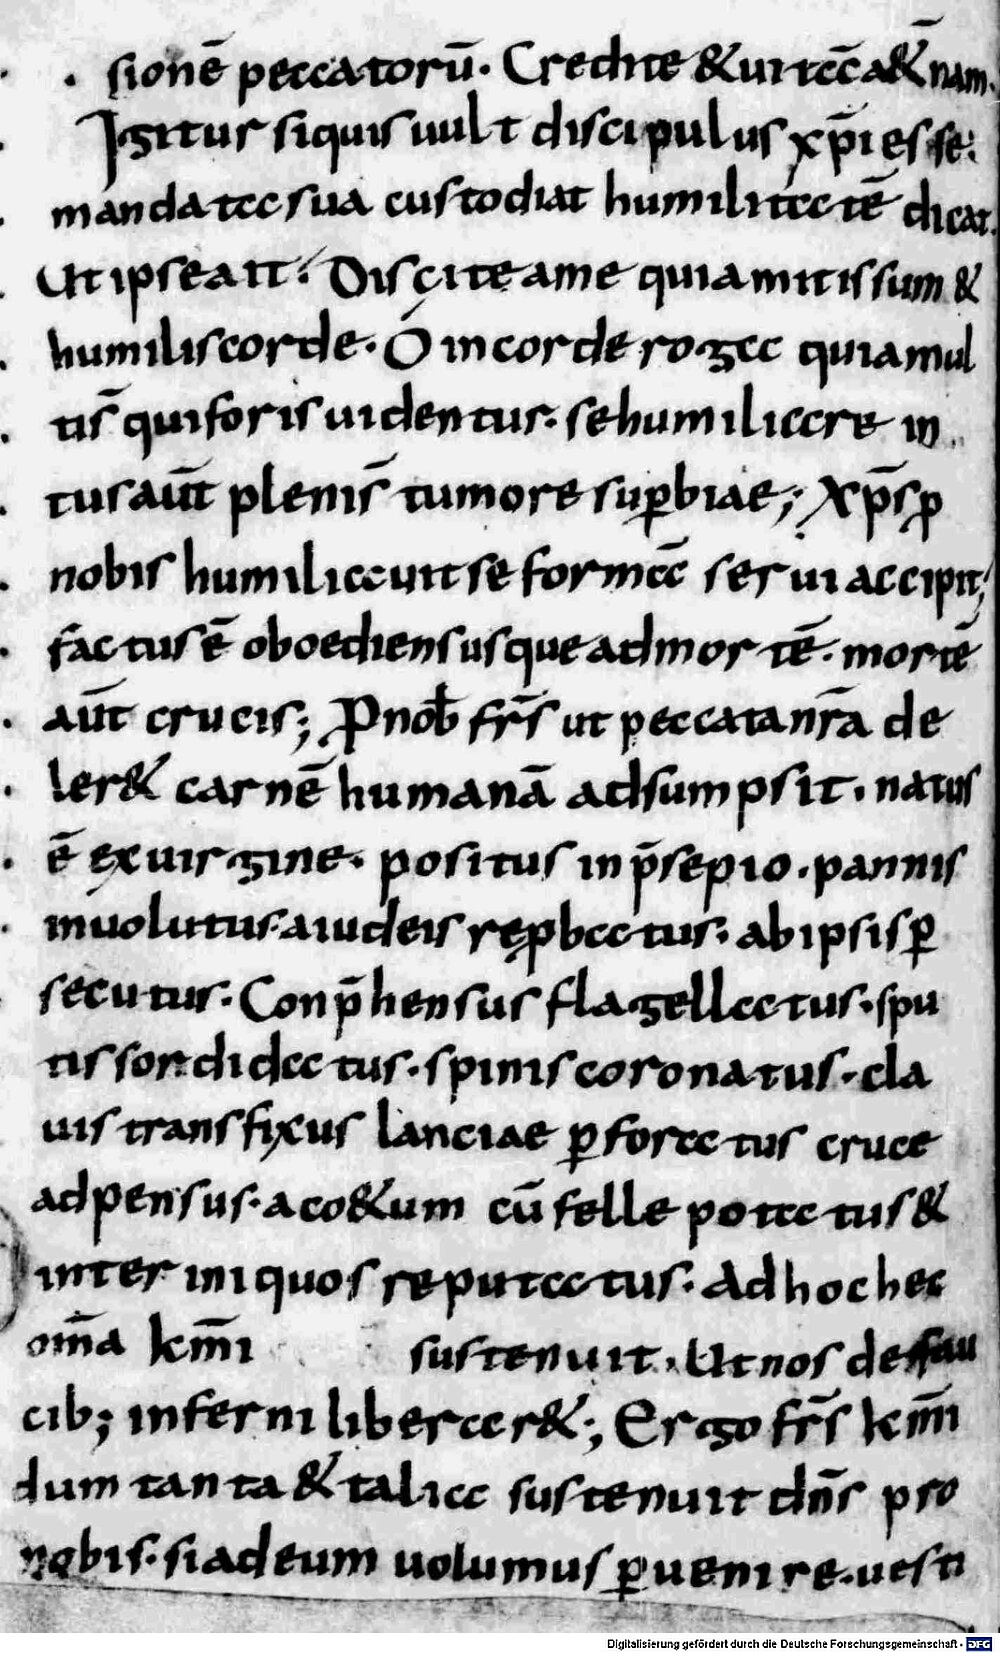 sionē peccatorū. Credite & uitā a&̄nam.
Igitur siquis uult discipulus xp̄i esse.
mandata sua custodiat humilitatē dicat.
Ut ipse ait. Discite a me quia mitis sum &
humilis corde. O in corde roga quia mul
tis̄ qui foris uidentur. se humiliare in
tus aūt plenis̄ tumore sup̱biae; Xp̄s ꝓ
nobis humiliauit se formā serui accipit;
factus ē oboediens usque ad mortē. mortē
aūt crucis; Pro nob̄ fr̄s ut peccata nr̄a de
ler& carnē humanā adsumpsit. natus
ē ex uirgine. positus in p̄sepio. pannis
inuolutus. a iudeis reꝓbatus. ab ipsis ꝑ
secutus. Conp̄hensus flagellatus. spu
tis sordidatus. spinis coronatus. cla
uis transfixus lanciae ꝑforatus cruce
adpensus. aco&um cū felle potatus &
inter iniquos reputatus. Ad hoc hec
om̄a km̄i sustenuit. Ut nos de fau
cib; inferni liberar&; Ergo fr̄s km̄i
dum tanta & talia sustenuit dn̄s pro
nobis. si ad eum uolumus ꝑuenire. uesti
Digitalisierung gefördert durch die Deutsche Forschungsgemeinschaft - DFG